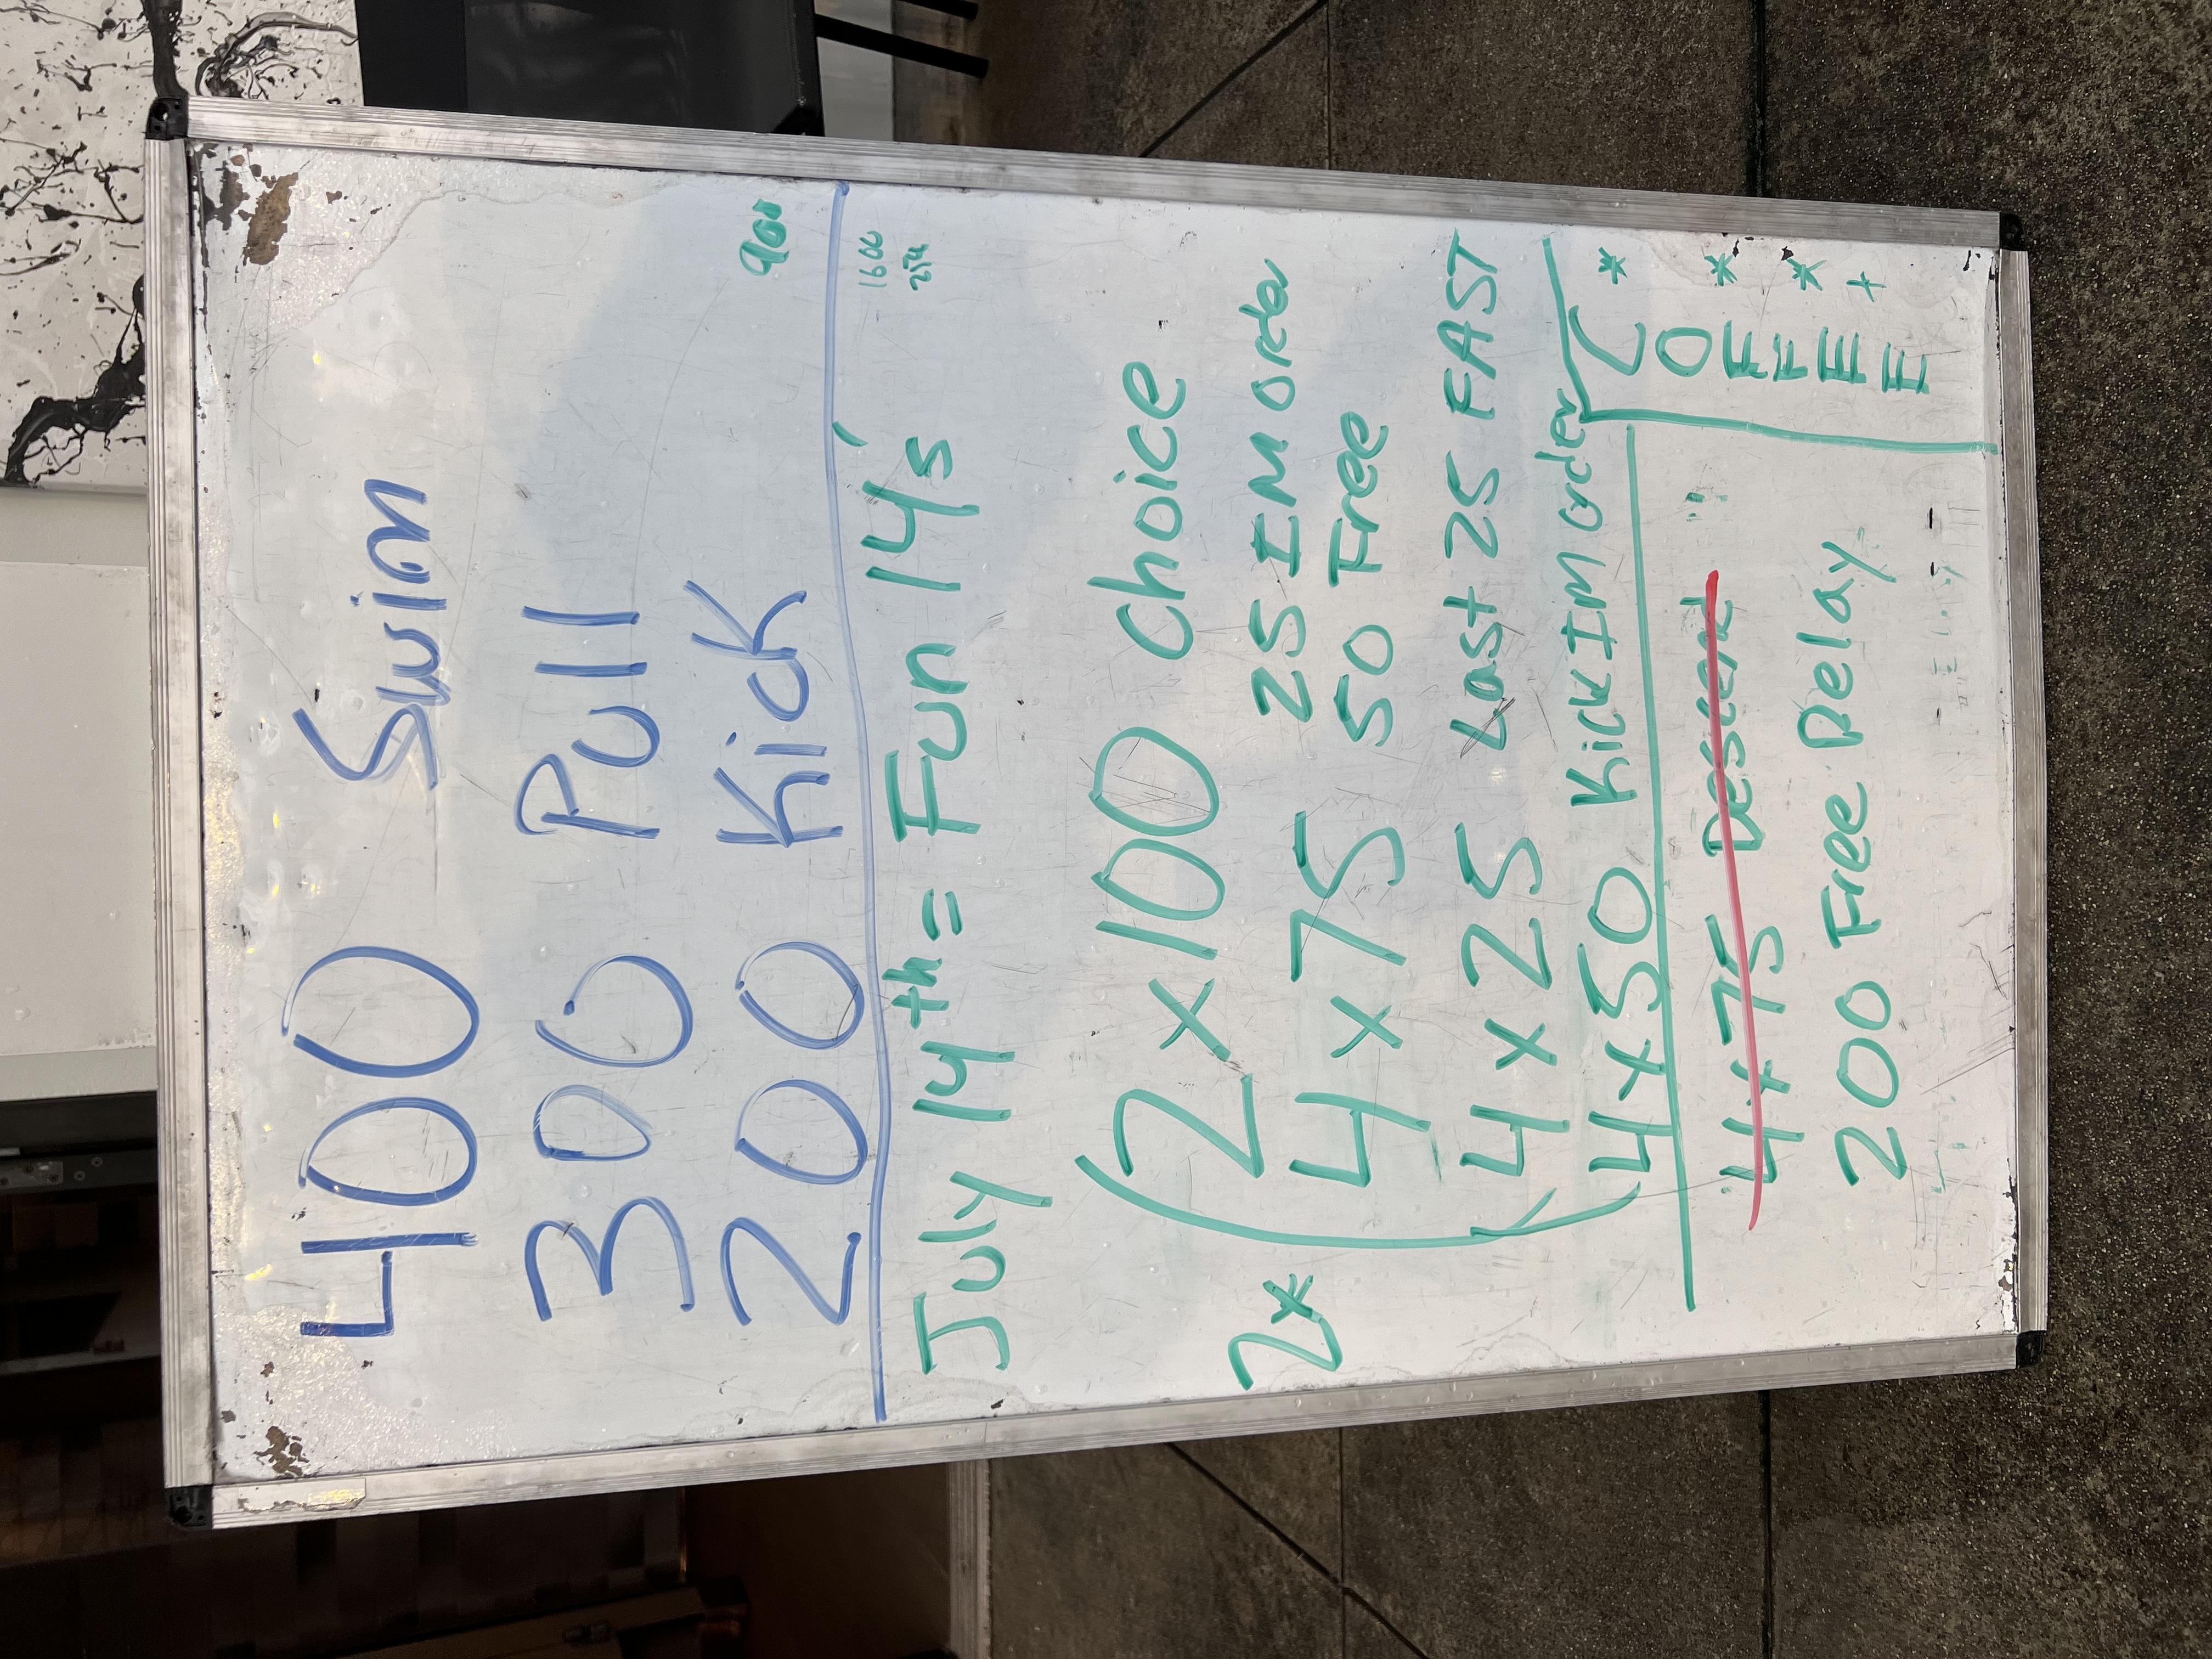 400 Swim
300 Pull
200 Kick
900
1600
July 14th = Fun 14's
2x
(2 x 100 choice
4 x 75 25 IM Order
50 Free
4 x 25 Last 25 FAST
4 x 50 Kick IM Order
4 x 75 Descend
200 Free Relay
C *
O
F *
F
E *
E +